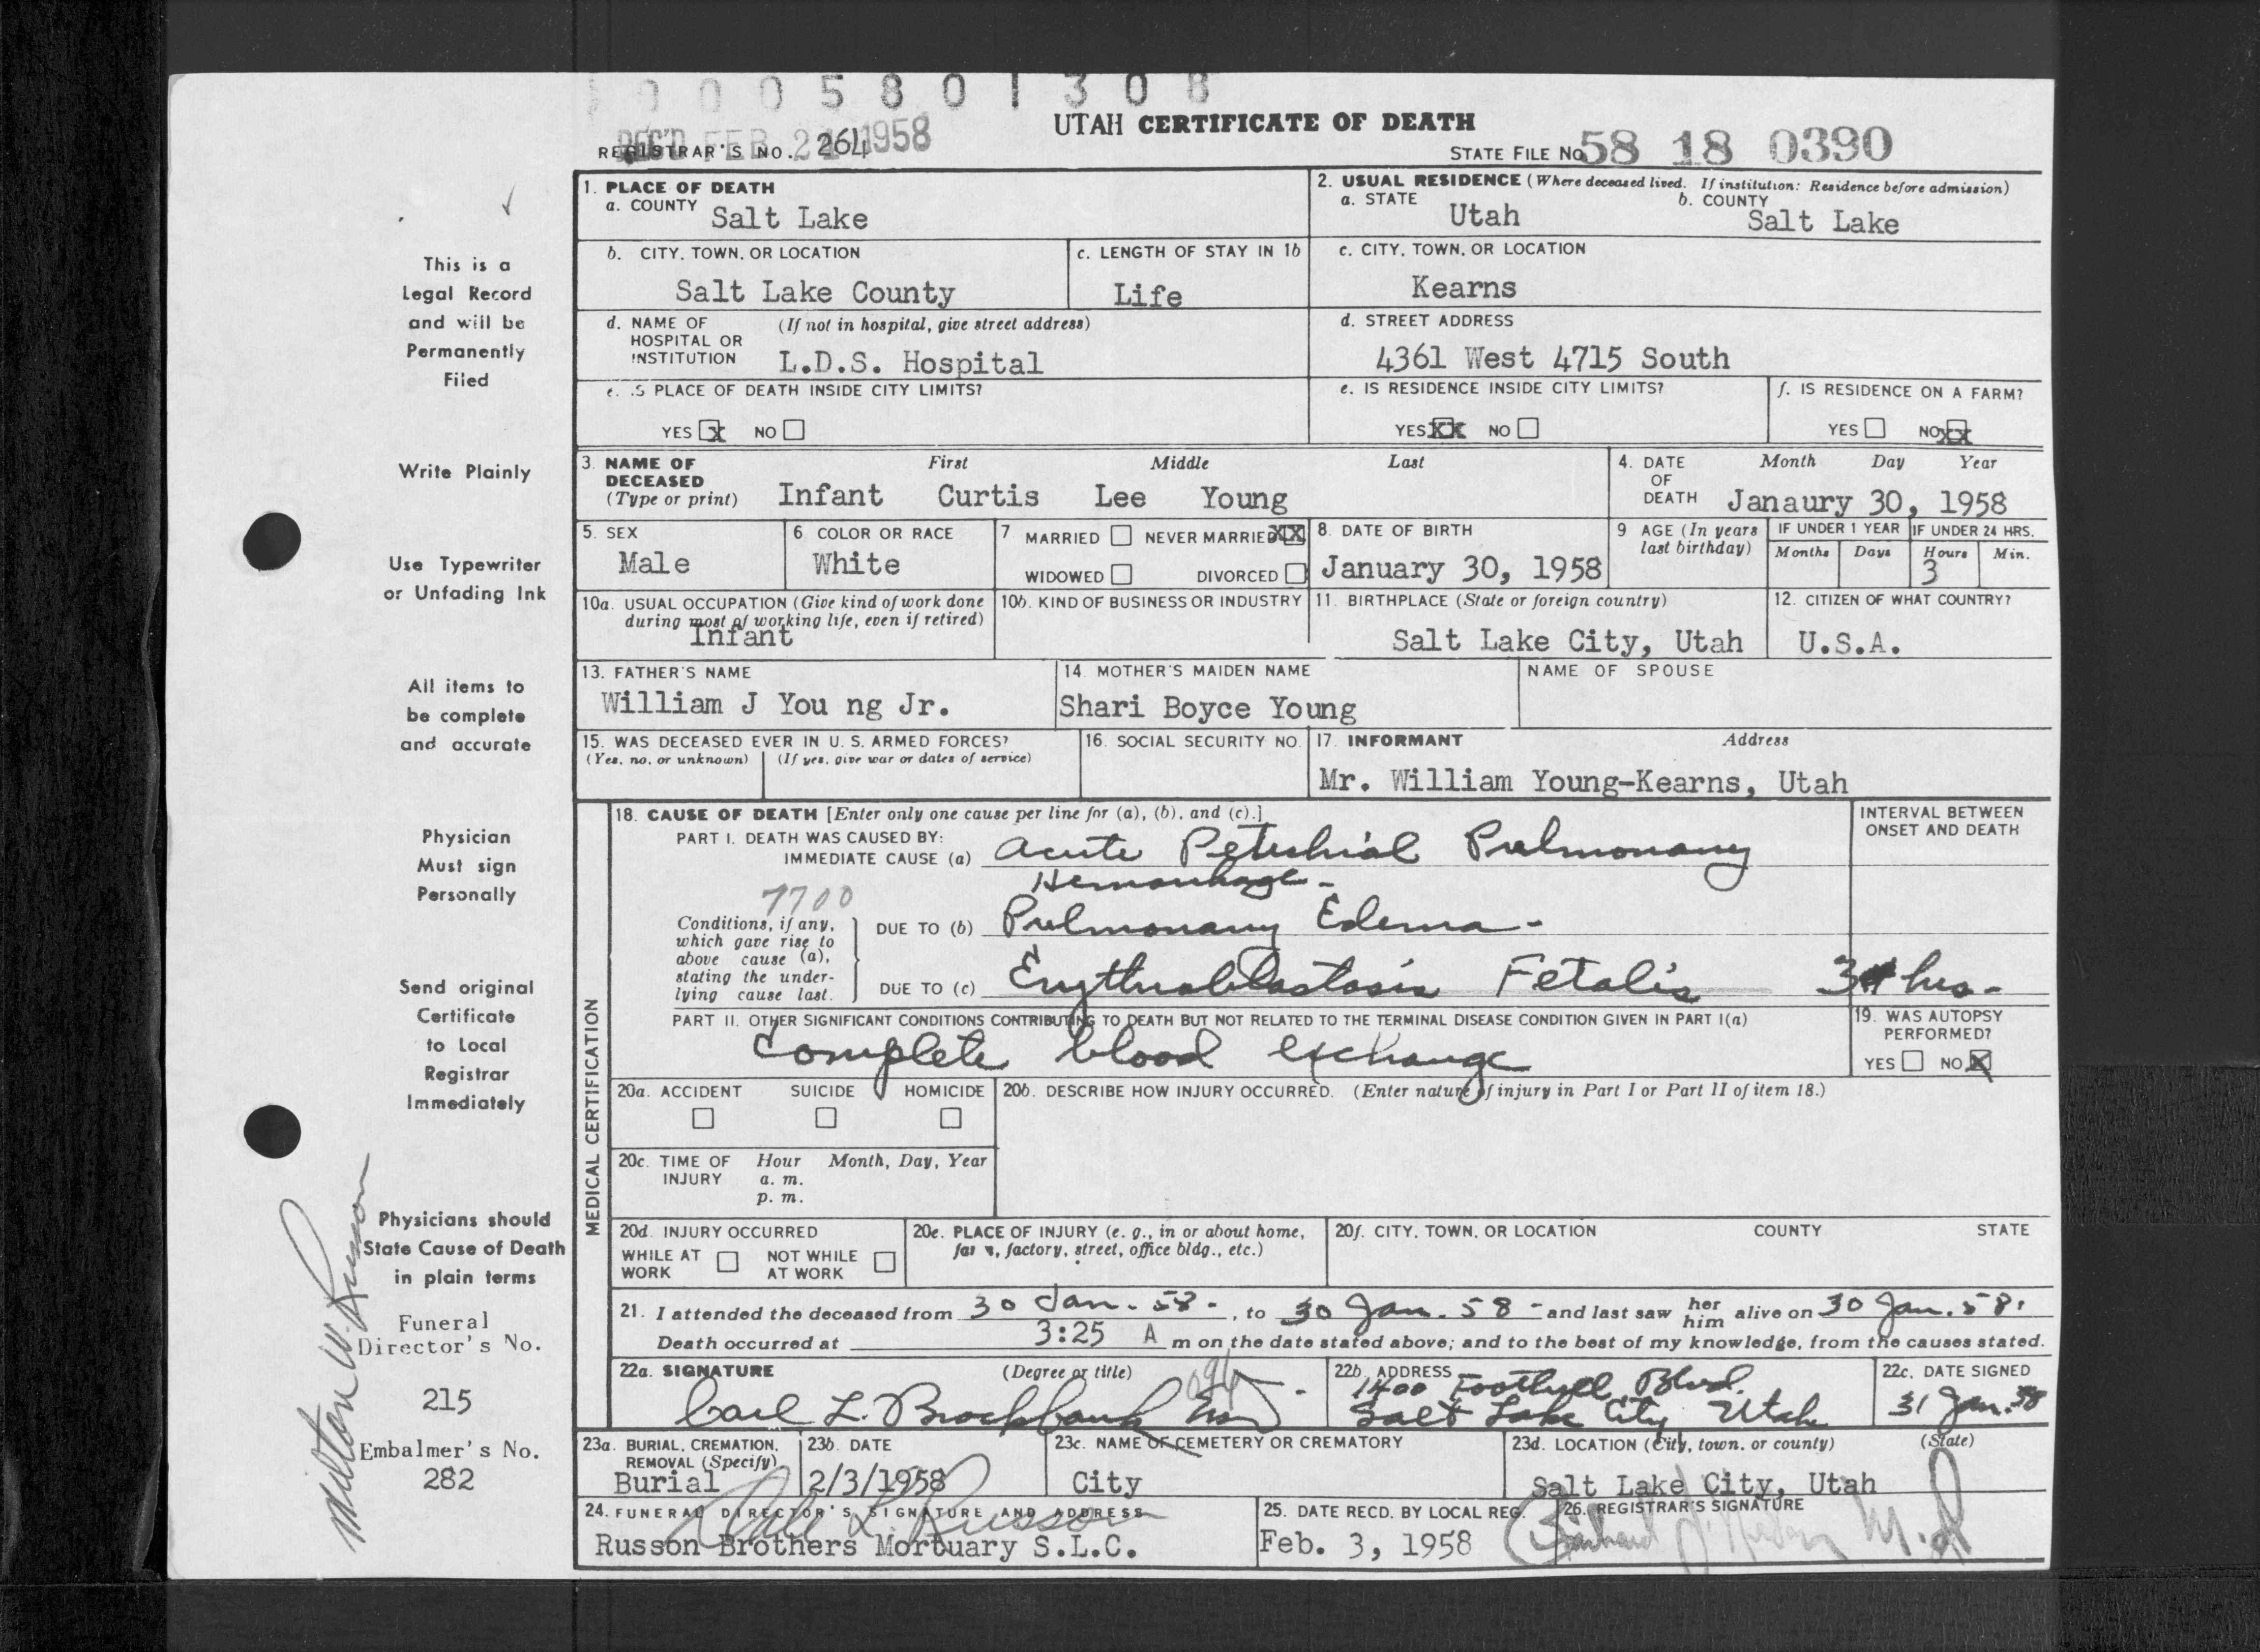 0 0 0 5 8 0 1 3 0 8
UTAH CERTIFICATE OF DEATH
REC'D FEB 21 1958
REGISTRAR'S NO. 264
STATE FILE No. 58 18 0390
1. PLACE OF DEATH
a. COUNTY Salt Lake
2. USUAL RESIDENCE (Where deceased lived. If institution: Residence before admission)
a. STATE Utah b. COUNTY Salt Lake
b. CITY, TOWN, OR LOCATION Salt Lake County
c. LENGTH OF STAY IN 1b Life
c. CITY, TOWN, OR LOCATION Kearns
d. NAME OF HOSPITAL OR INSTITUTION (If not in hospital, give street address) L.D.S. Hospital
d. STREET ADDRESS 4361 West 4715 South
e. IS PLACE OF DEATH INSIDE CITY LIMITS?
YES X NO
e. IS RESIDENCE INSIDE CITY LIMITS?
YES XX NO
f. IS RESIDENCE ON A FARM?
YES NO XX
3. NAME OF DECEASED (Type or print) First Middle Last
Infant Curtis Lee Young
4. DATE OF DEATH Month Day Year
Janaury 30, 1958
5. SEX Male
6 COLOR OR RACE White
7 MARRIED NEVER MARRIED XX
WIDOWED DIVORCED
8. DATE OF BIRTH January 30, 1958
9 AGE (In years last birthday)
IF UNDER 1 YEAR Months Days
IF UNDER 24 HRS. Hours 3 Min.
10a. USUAL OCCUPATION (Give kind of work done during most of working life, even if retired) Infant
10b. KIND OF BUSINESS OR INDUSTRY
11. BIRTHPLACE (State or foreign country) Salt Lake City, Utah
12. CITIZEN OF WHAT COUNTRY? U.S.A.
13. FATHER'S NAME William J You ng Jr.
14. MOTHER'S MAIDEN NAME Shari Boyce Young
NAME OF SPOUSE
15. WAS DECEASED EVER IN U. S. ARMED FORCES?
(Yes, no, or unknown) (If yes, give war or dates of service)
16. SOCIAL SECURITY NO.
17. INFORMANT Address
Mr. William Young-Kearns, Utah
MEDICAL CERTIFICATION
18. CAUSE OF DEATH [Enter only one cause per line for (a), (b), and (c).]
INTERVAL BETWEEN ONSET AND DEATH
PART I. DEATH WAS CAUSED BY:
IMMEDIATE CAUSE (a) Acute Petechial Pulmonary
Hemorrhage-
7700
Conditions, if any, which gave rise to above cause (a), stating the underlying cause last.
DUE TO (b) Pulmonary Edema-
DUE TO (c) Erythroblastosis Fetalis 3 hrs-
PART II. OTHER SIGNIFICANT CONDITIONS CONTRIBUTING TO DEATH BUT NOT RELATED TO THE TERMINAL DISEASE CONDITION GIVEN IN PART I(a)
Complete blood exchange
19. WAS AUTOPSY PERFORMED?
YES NO X
20a. ACCIDENT SUICIDE HOMICIDE
20b. DESCRIBE HOW INJURY OCCURRED. (Enter nature of injury in Part I or Part II of item 18.)
20c. TIME OF INJURY Hour a. m. p. m. Month, Day, Year
20d. INJURY OCCURRED
WHILE AT WORK NOT WHILE AT WORK
20e. PLACE OF INJURY (e. g., in or about home, farm, factory, street, office bldg., etc.)
20f. CITY, TOWN, OR LOCATION COUNTY STATE
21. I attended the deceased from 30 Jan. 58-, to 30 Jan. 58 - and last saw her him alive on 30 Jan. 58.
Death occurred at 3:25 A m on the date stated above; and to the best of my knowledge, from the causes stated.
22a. SIGNATURE (Degree or title) 094
Carl L. Brockbank MD
22b. ADDRESS 1400 Foothill Blvd.
Salt Lake City Utah
22c. DATE SIGNED 31 Jan. 58
23a. BURIAL, CREMATION, REMOVAL (Specify) Burial
23b. DATE 2/3/1958
23c. NAME OF CEMETERY OR CREMATORY City
23d. LOCATION (City, town, or county) (State)
Salt Lake City, Utah
24. FUNERAL DIRECTOR'S SIGNATURE AND ADDRESS
Dale L. Russon
Russon Brothers Mortuary S.L.C.
25. DATE RECD. BY LOCAL REG. Feb. 3, 1958
26. REGISTRAR'S SIGNATURE
M.D.
This is a
Legal Record
and will be
Permanently
Filed
Write Plainly
Use Typewriter
or Unfading Ink
All items to
be complete
and accurate
Physician
Must sign
Personally
Send original
Certificate
to Local
Registrar
Immediately
Physicians should
State Cause of Death
in plain terms
Funeral
Director's No.
215
Embalmer's No.
282
Milton W. Russon